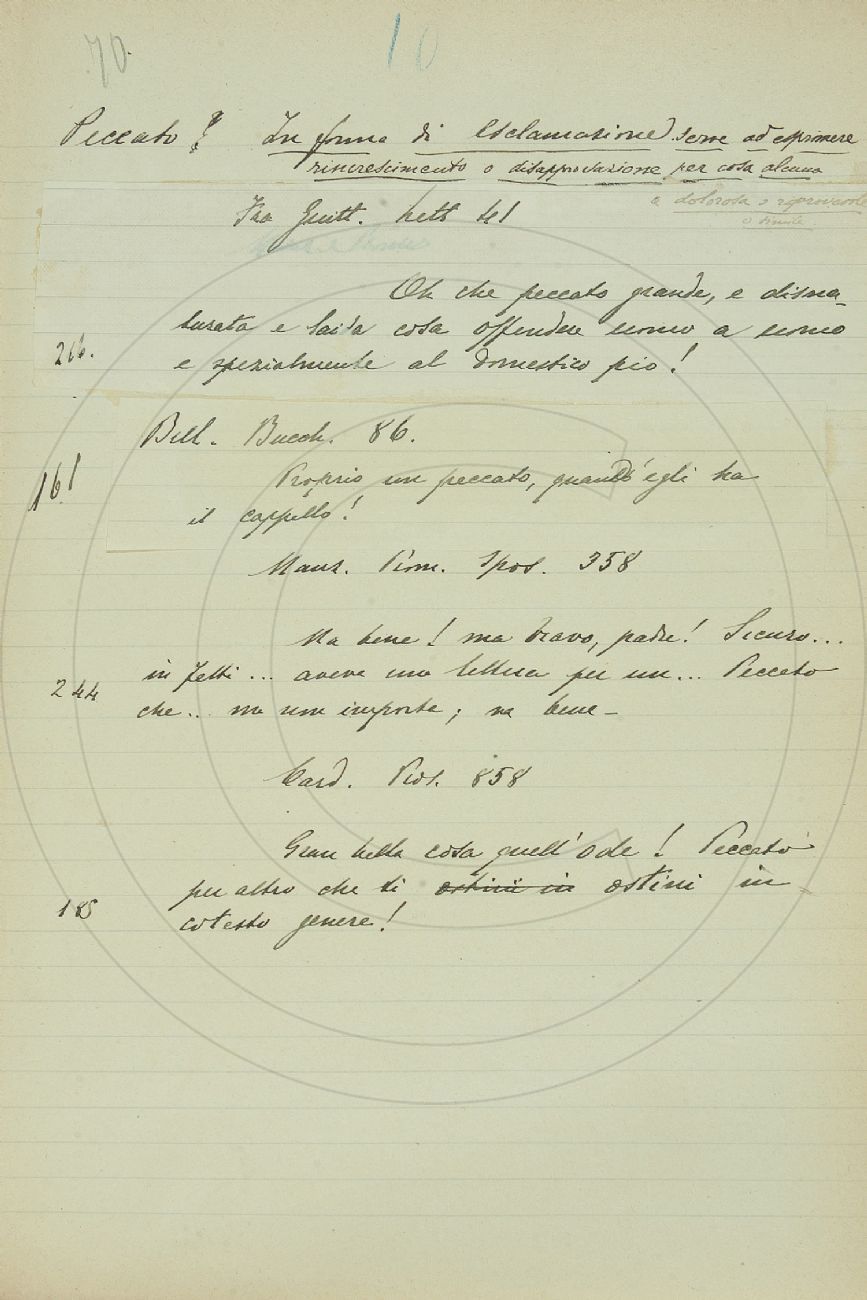 70. 10
Peccato! In forma di esclamazione serve ad esprimere
rincrescimento o disapprovazione per cosa alcuna
a dolorosa o riprovevole
o simile.
Fra Guitt. Lett 41
Oh che peccato grande, e disna-
turata e laida cosa offendere uomo a uomo
216.
e spezialmente al domestico pio!
Bell. Bucch. 86.
161
Proprio un peccato, quand'egli ha
il cappello!
Manz. Prom. Spos. 358
Ma bene! ma bravo, padre! Sicuro...
in fatti... aveva una lettera per un... Peccato
244
che.. ma non importa; va bene-
Card. Pros. 858
Gran bella cosa quell'ode! Peccato
per altro che ti ostini in ostini in
185
cotesto genere!